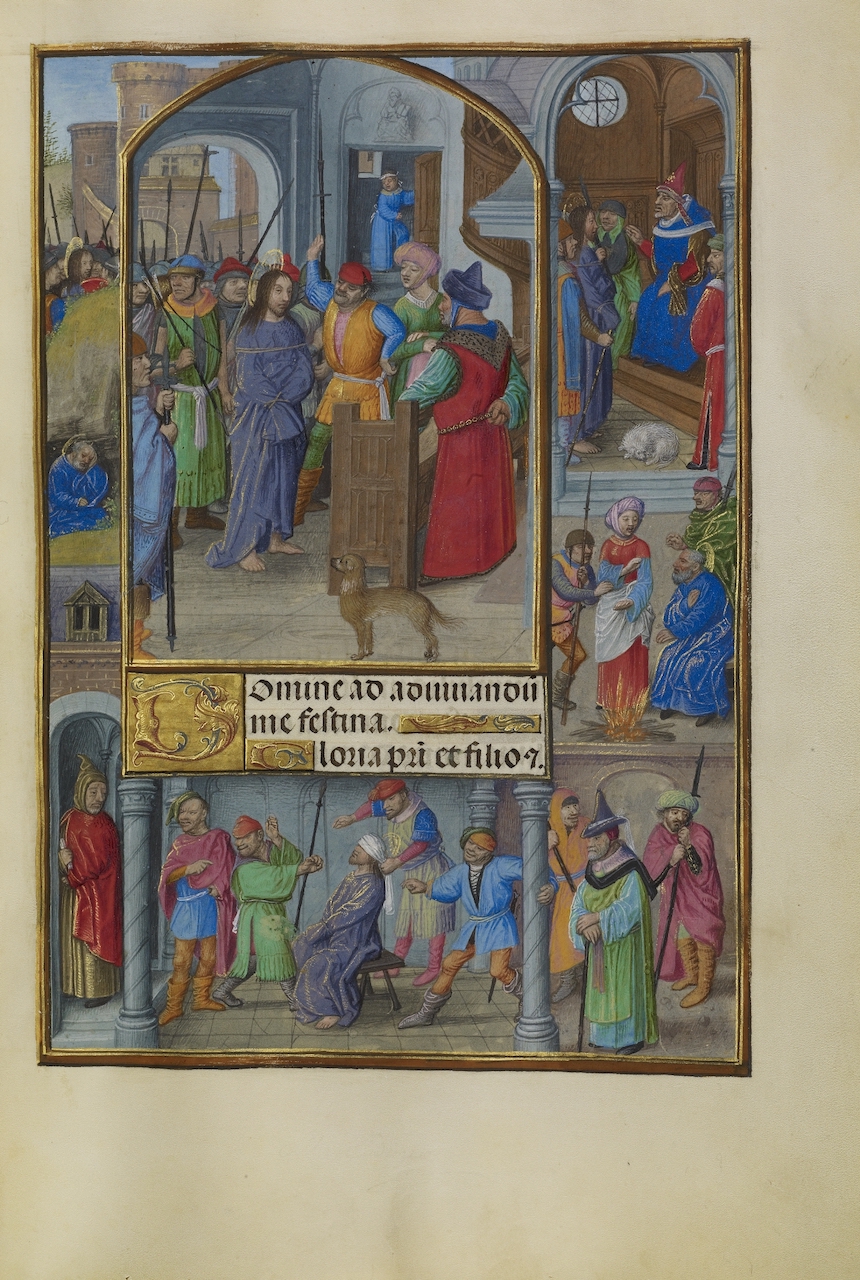 Domine ad adiuuandū
me festina.
Gloria pr̄i et filio ⁊.